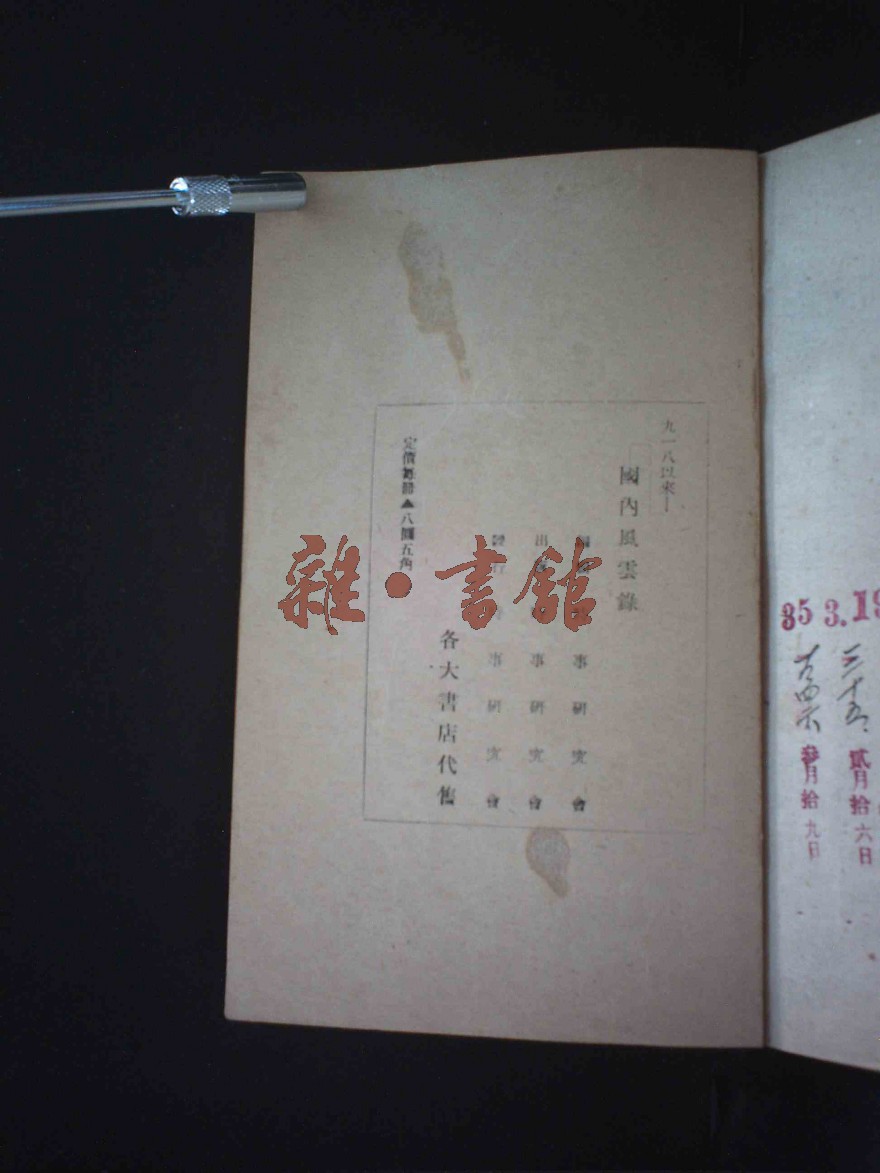 九一八以來——
國內風雲錄
事研究會
出
事研究會
事研究會
各大書店代售
定價每冊▲八圓五角
雜·書館
35 3.19
貳月拾六日
叁月拾九日